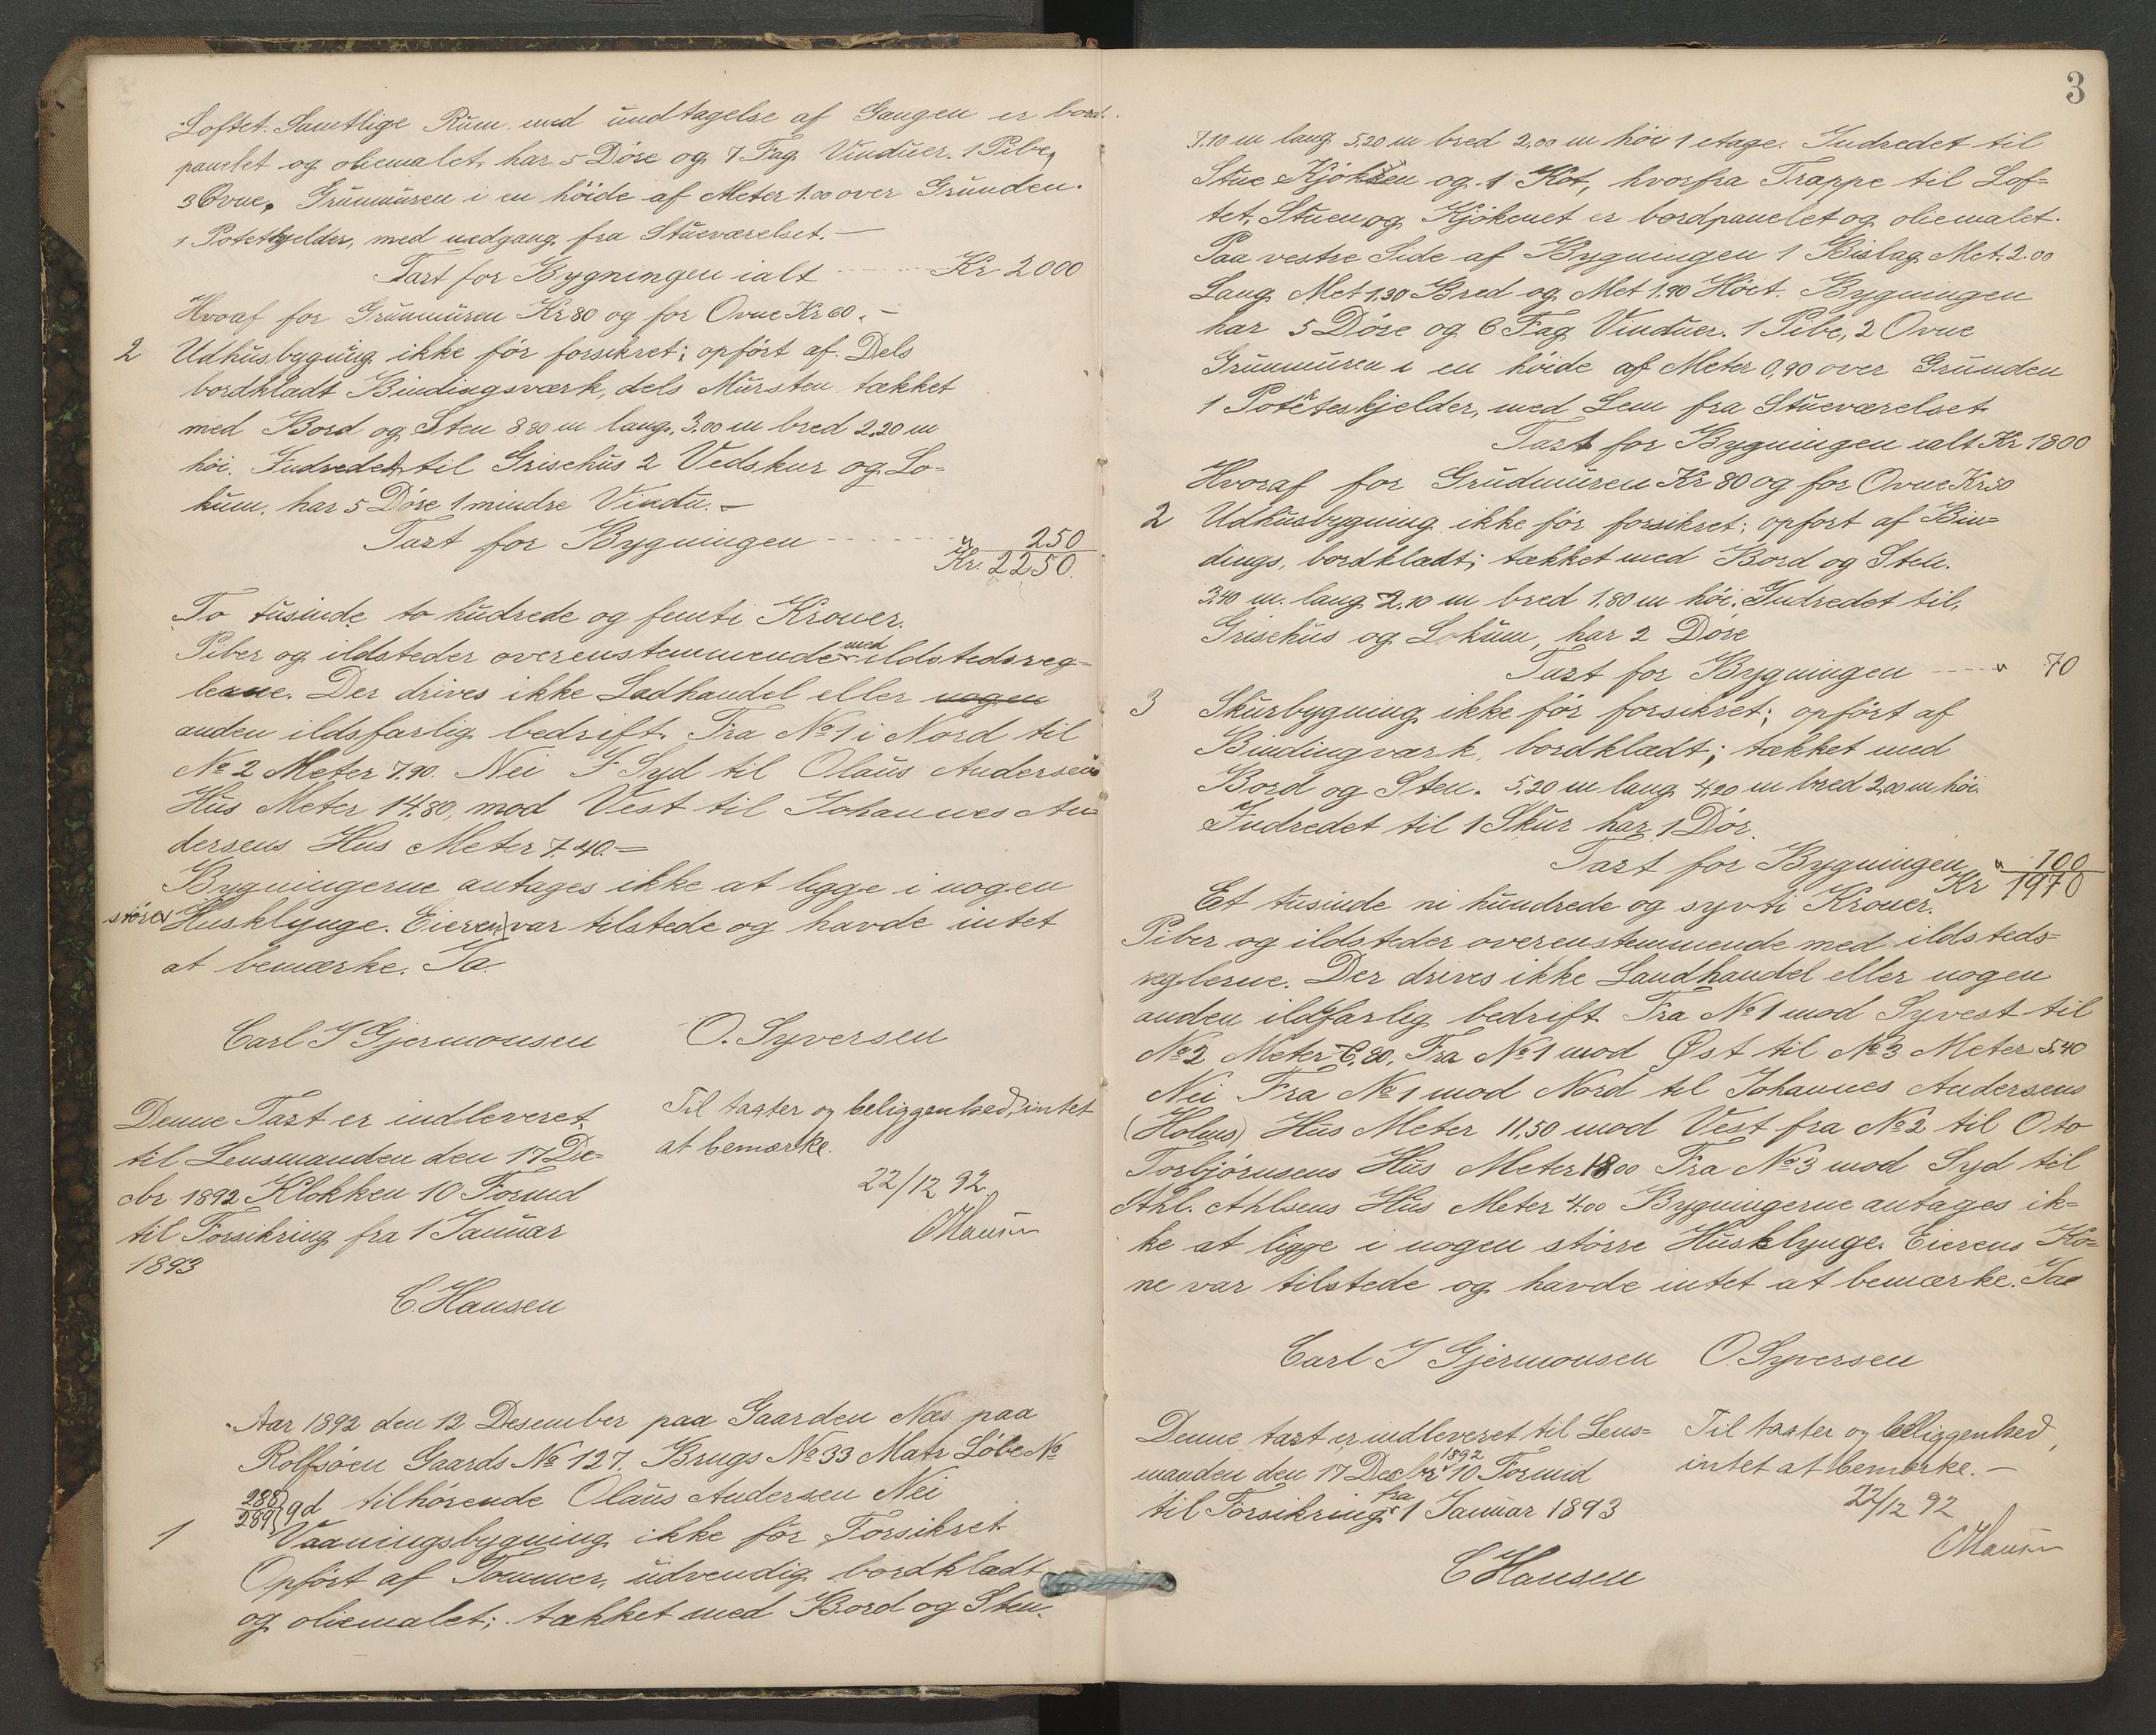 Loftet. Samtlige Rum, med undtagelse af Gangen er bord-
panelet og oliemalet, har 5 Døre og 7 Fag Vinduer. 1 Pibe,
3 Ovne, Grunmuren i en höide af Meter 1.00 over Grunden.
1 Potetkjelder, med nedgang fra Stueværelset.—
Taxt for Bygningen ialt Kr 2000
Hvoaf for Grunmuren Kr 80 og for Ovne Kr 60.—
2 Udhusbygning ikke før forsikret; opført af Dels
bordklædt Bindingsværk, dels Mursten tækket
med Bord og Sten 8.80 m lang, 3.00 m bred 2.20 m
höi. Indredet til Grisehus 2 Vedskur og Lo-
kum, har 5 Døre 1 mindre Vindu.—
Taxt for Bygningen " 250
Kr. 2250.
To tusinde to hudrede og femti Kroner.
Piber og ildsteder overenstemmende med ildstedsreg-
lerne. Der drives ikke Ladhandel eller nogen
anden ildsfarlig bedrift. Fra No 1 i Nord til
No 2 Meter 7.90. Nei I Syd til Olaus Andersens
Hus Meter 14.80, mod Vest til Johannes An-
dersens Hus Meter 7.40.—
Bygningerne antages ikke at ligge i nogen
større Husklynge. Eieren var tilstede og havde intet
at bemærke. Ja.
Carl J Gjermonsen O. Syversen
Denne Taxt er indleveret
til Lensmanden den 17 De-
cbr 1892 Klokken 10 Formd
til Forsikring fra 1 Januar
1893
C. Hansen
Til taxter og beliggenhed, intet
at bemærke.
22/12 92
CHansen
Aar 1892 den 12 Desember paa Gaarden Næs paa
Rolfsøen Gaards No 127. Brugs No 33 Matr Løbe No
288/289 gd tilhørende Olaus Andersen Nei
1 Vaaningsbygning ikke før Forsikret
Opført af Tømmer, udvendig bordklædt
og oliemalet; tækket med Bord og Sten.
3
7.10 m lang 5.20 m bred 2.00 m höi 1 etage. Indredet til
Stue Kjøkken og 1 Kot, hvorfra Trappe til Lof-
tet, Stuen og Kjøkenet er bordpanelet og oliemalet.
Paa vestre Side af Bygningen 1 Bislag Met. 2.00
Lang Met 1.30 Bred og Met 1.90 Höit. Bygningen
har 5 Døre og 6 Fag Vinduer. 1 Pibe, 2 Ovne
Grunmuren i en höide af Meter 0,90 over Grunden
1 Poteteskjelder, med Lem fra Stueværelset.
Taxt for Bygningen ialt Kr 1800
Hvoraf for Grudmuren Kr 80 og for Ovne Kr 50
2 Udhusbygning ikke før forsikret; opført af Bin-
dings, bordklædt; tækket med Bord og Sten.
3.40 m. lang 2.10 m bred 1.80 m höi. Indredet til,
Grisehus og Lokum, har 2 Døre
Taxt for Bygningen " 70
3 Skurbygning ikke før forsikret; opført af
Bindingværk, bordklædt; tækket med
Bord og Sten. 5.20 m lang 4.20 m bred 2.00 m höi.
Indredet til 1 Skur har 1 Dør.
Taxt for Bygningen " 100
Kr 1970
Et tusinde ni hundrede og sytti Kroner.
Piber og ildsteder overenstemmende med ildsteds-
reglerne. Der drives ikke Landhandel eller nogen
anden ildsfarlig bedrift. Fra No 1 mod Syvest til
No 2 Meter 6.80, Fra No 1 mod Øst til No 3 Meter 5.40
Nei Fra No 1 mod Nord til Johannes Andersens
(Holms) Hus Meter 11,50 mod Vest fra No 2 til Oto
Torbjørnsens Hus Meter 18 00 Fra No 3 mod Syd til
Ahl. Ahlsens Hus Meter 4.00 Bygningerne antages ik-
ke at ligge i nogen större Husklynge. Eierens Ko-
ne var tilstede og havde intet at bemærke. Ja
Carl J Gjermonsen O. Syversen
Denne taxt er indleveret til Lens-
manden den 17 Decbr 1892 10 Formid
til Forsikring fra 1 Januar 1893
C Hansen
Til taxter og beliggenhed,
intet at bemærke.—
22/12 92
CHansen